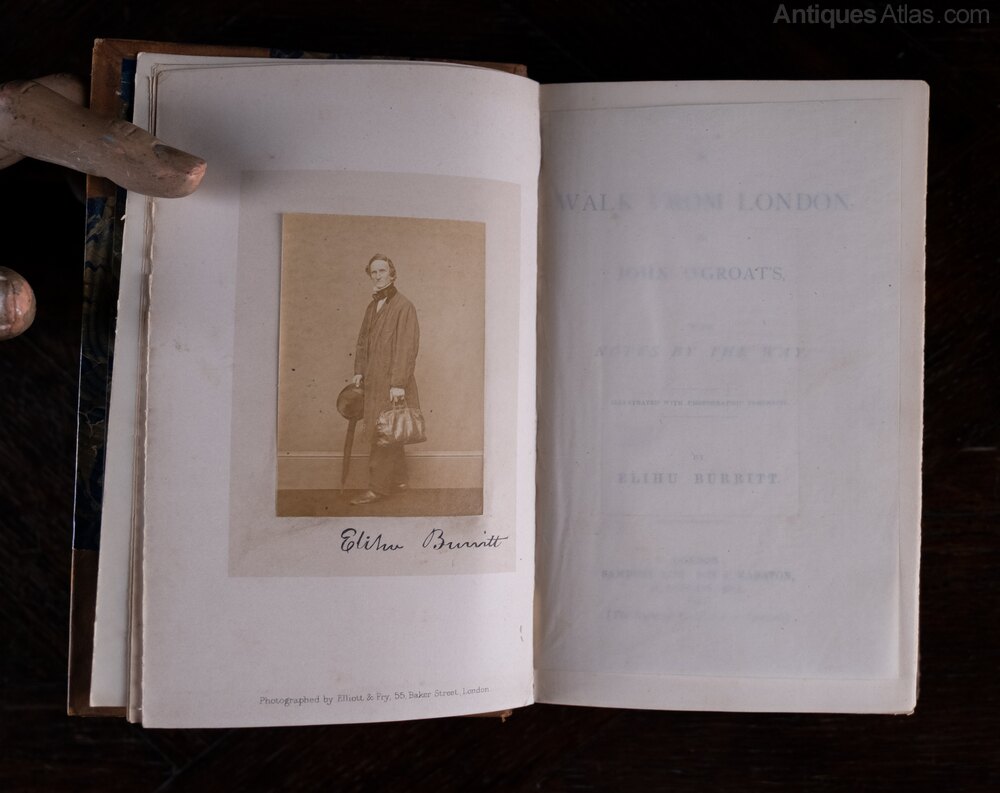 AntiquesAtlas.com
Elihu Burritt
Photographed by Elliott & Fry, 55, Baker Street, London.
WALK FROM LONDON
JOHN O'GROAT'S,
NOTES BY THE WAY.
ILLUSTRATED WITH PHOTOGRAPHIC PORTRAITS.
BY
ELIHU BURRITT.
LONDON:
MARSTON,